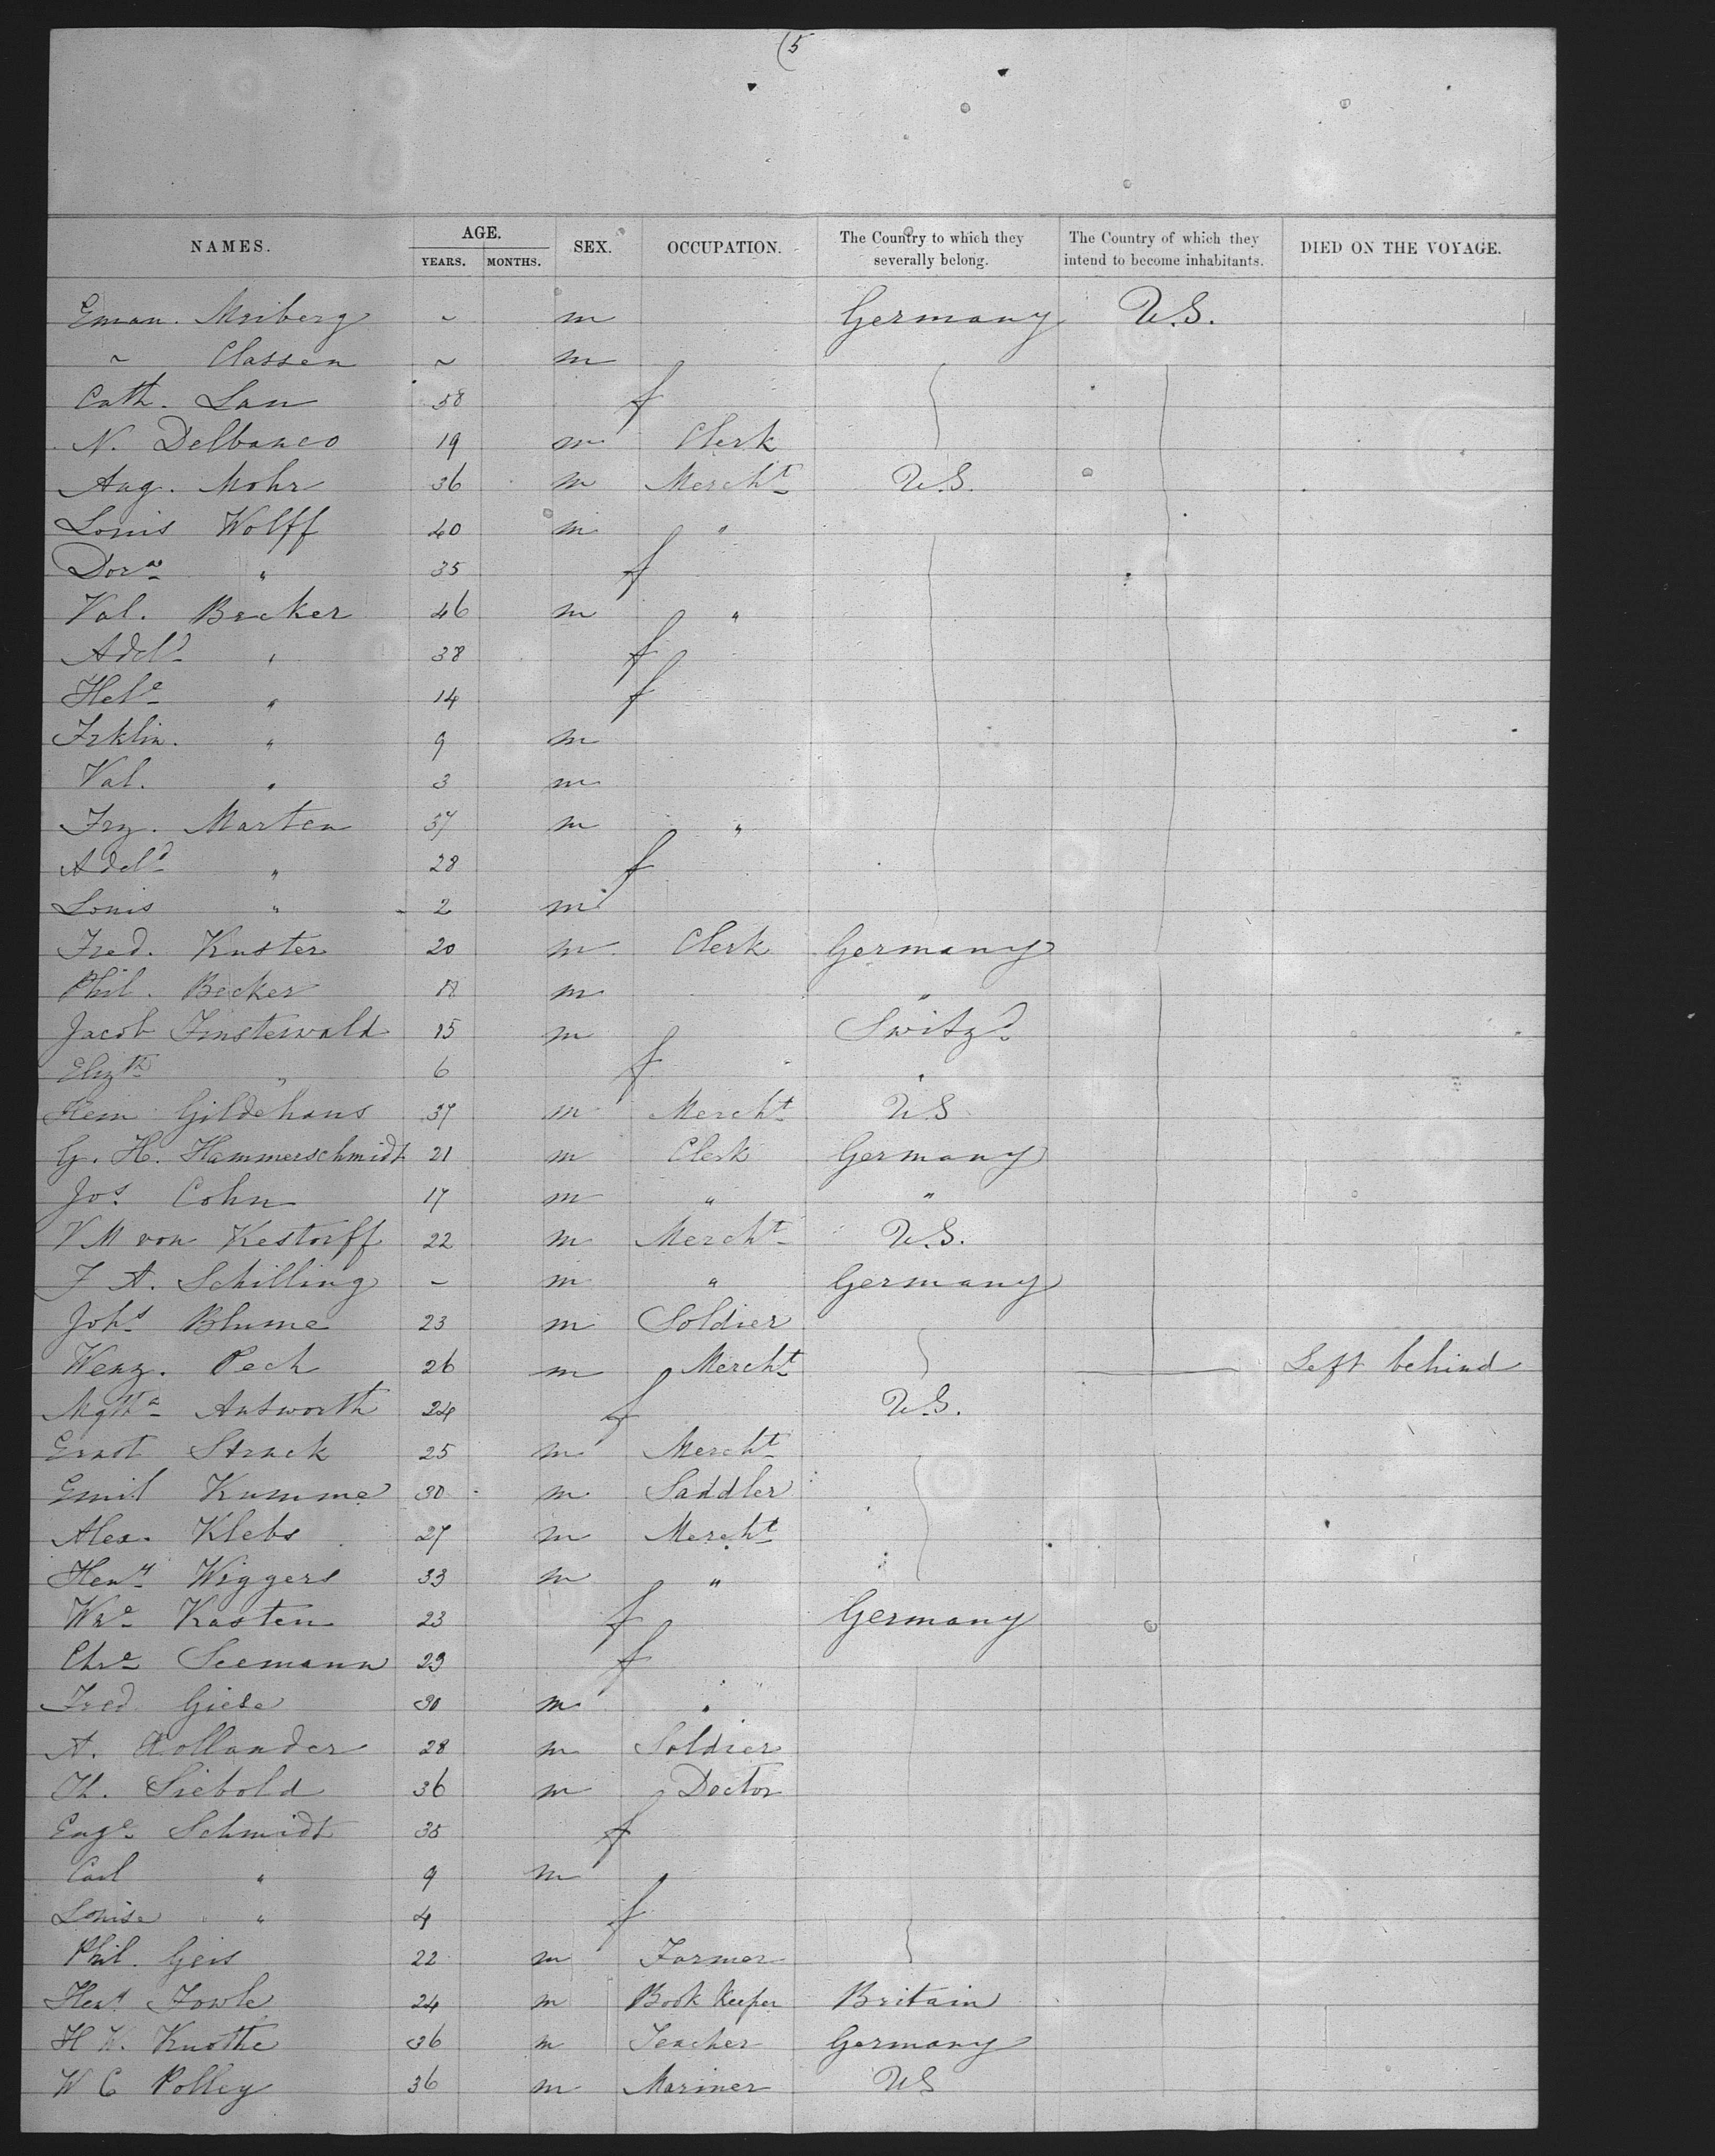 (5
NAMES. AGE. YEARS. MONTHS. SEX. OCCUPATION. The Country to which they severally belong. The Country of which they intend to become inhabitants. DIED ON THE VOYAGE.
Eman. Meiberg ~ m Germany U.S.
~ Classen ~ m
Cath. Lau 58 f
N. Delbanco 19 m Clerk
Aug. Mohr 36 m Mercht U.S.
Louis Wolff 40 m "
Dora " 35 f
Val. Becker 46 m "
Adeld " 38 f
Hele " 14 f
Frklin. " 9 m
Val. " 3 m
Frz. Marten 37 m "
Adeld " 28 f
Louis " 2 m
Fred. Kuster 20 m Clerk Germany
Phil. Becker 18 m "
Jacob Finsterwald 15 m Switzd
Elizth " 6 f "
Hein Gildehaus 37 m Mercht U.S
G. H. Hammerschmidt 21 m Clerk Germany
Jos. Cohn 17 m " "
V M von Kestorff 22 m Mercht U.S.
F A. Schilling - m " Germany
Johs Blume 23 m Soldier
Wenz. Pech 26 m Mercht Left behind
Mgtha Answorth 24 f U.S.
Ernst Struck 25 m Mercht
Emil Kumme 30 m Saddler
Alex. Klebs 27 m Mercht
Heny Wiggers 33 m "
Wne Kasten 23 f Germany
Chre Seemann 23 f
Fred Giese 30 m "
A. Hollander 28 m Soldier
Th. Siebold 36 m Doctor
Enge Schmidt 35 f
Carl " 9 m
Louise " 4 f
Phil. Geis 22 m Farmer
Heny Fowle 24 m Book Keeper Britain
H W. Knothe 36 m Teacher Germany
W C Polley 36 m Mariner US